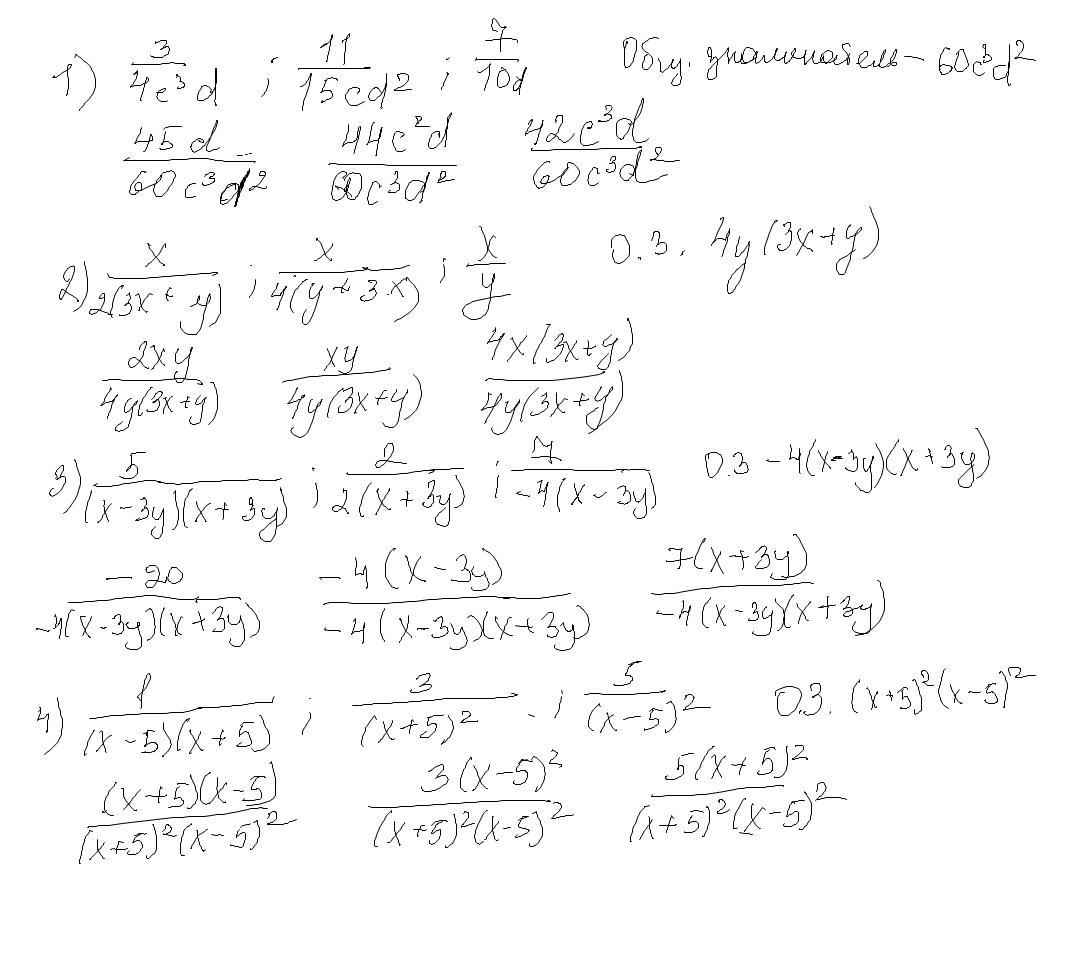 1) 3/(4c³d) ; 11/(15cd²) ; 7/(10d) Общ. знаменатель – 60c³d²
45d/(60c³d²) 44c²d/(60c³d²) 42c³d/(60c³d²)
2) x/(2(3x+y)) ; x/(4(y+3x)) ; x/y О.З. 4y(3x+y)
2xy/(4y(3x+y)) xy/(4y(3x+y)) 4x(3x+y)/(4y(3x+y))
3) 5/((x-3y)(x+3y)) ; 2/(2(x+3y)) ; 7/(-4(x-3y)) О.З -4(x-3y)(x+3y)
-20/(-4(x-3y)(x+3y)) -4(x-3y)/(-4(x-3y)(x+3y)) 7(x+3y)/(-4(x-3y)(x+3y))
4) 1/((x-5)(x+5)) ; 3/(x+5)² ; 5/(x-5)² О.З. (x+5)²(x-5)²
(x+5)(x-5)/((x+5)²(x-5)²) 3(x-5)²/((x+5)²(x-5)²) 5(x+5)²/((x+5)²(x-5)²)